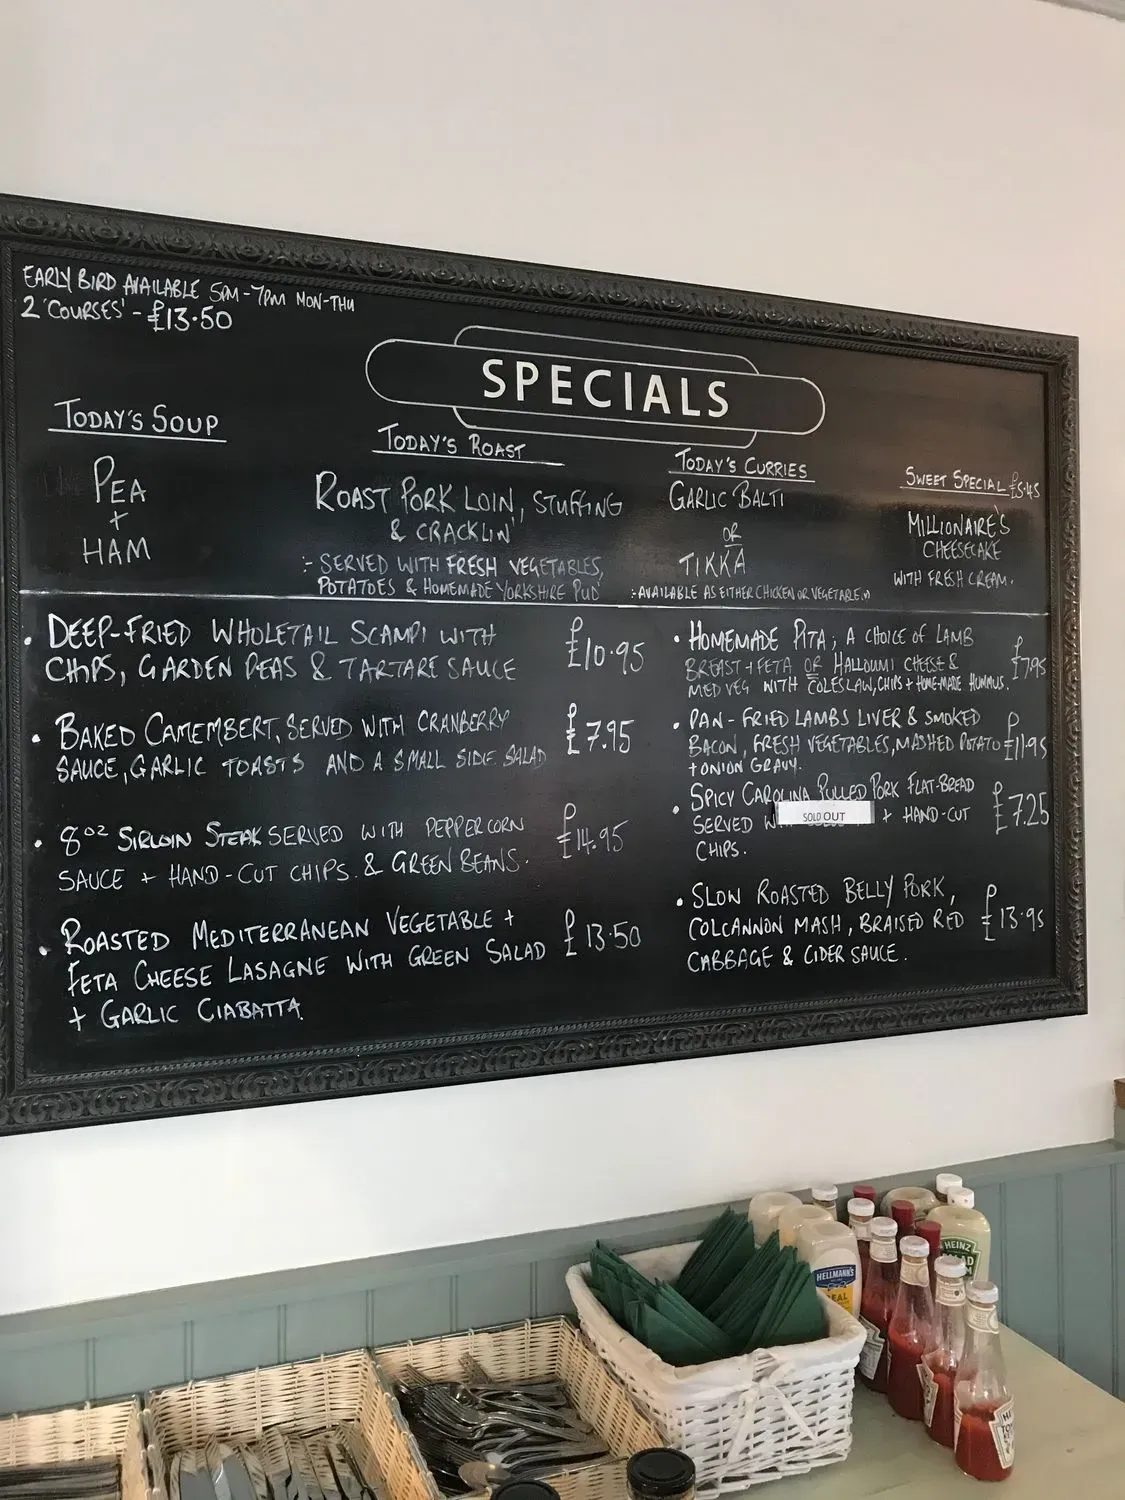 EARLY BIRD AVAILABLE 5PM-7PM MON-THU
2 'COURSES' - £13.50
SPECIALS
TODAY'S SOUP
PEA
+
HAM
TODAY'S ROAST
ROAST PORK LOIN, STUFFING
& CRACKLIN'
:- SERVED WITH FRESH VEGETABLES,
POTATOES & HOMEMADE YORKSHIRE PUD
TODAY'S CURRIES
GARLIC BALTI
OR
TIKKA
:- AVAILABLE AS EITHER CHICKEN OR VEGETABLE
SWEET SPECIAL £5.45
MILLIONAIRE'S
CHEESECAKE
WITH FRESH CREAM.
• DEEP-FRIED WHOLETAIL SCAMPI WITH
CHIPS, GARDEN PEAS & TARTARE SAUCE £10.95
• BAKED CAMEMBERT, SERVED WITH CRANBERRY
SAUCE, GARLIC TOASTS AND A SMALL SIDE SALAD £7.95
• 8oz SIRLOIN STEAK SERVED WITH PEPPERCORN
SAUCE + HAND-CUT CHIPS & GREEN BEANS. £14.95
• ROASTED MEDITERRANEAN VEGETABLE +
FETA CHEESE LASAGNE WITH GREEN SALAD £13.50
+ GARLIC CIABATTA
• HOMEMADE PITA; A CHOICE OF LAMB
BREAST + FETA OR HALLOUMI CHEESE & £7.95
MED VEG WITH COLESLAW, CHIPS + HOME-MADE HUMMUS.
• PAN-FRIED LAMBS LIVER & SMOKED
BACON, FRESH VEGETABLES, MASHED POTATO £11.95
+ ONION GRAVY.
• SPICY CAROLINA PULLED PORK FLAT-BREAD
SERVED W SOLD OUT + HAND-CUT £7.25
CHIPS.
• SLOW ROASTED BELLY PORK,
COLCANNON MASH, BRAISED RED £13.95
CABBAGE & CIDER SAUCE.
HELLMANN'S
REAL
HEINZ
SALAD